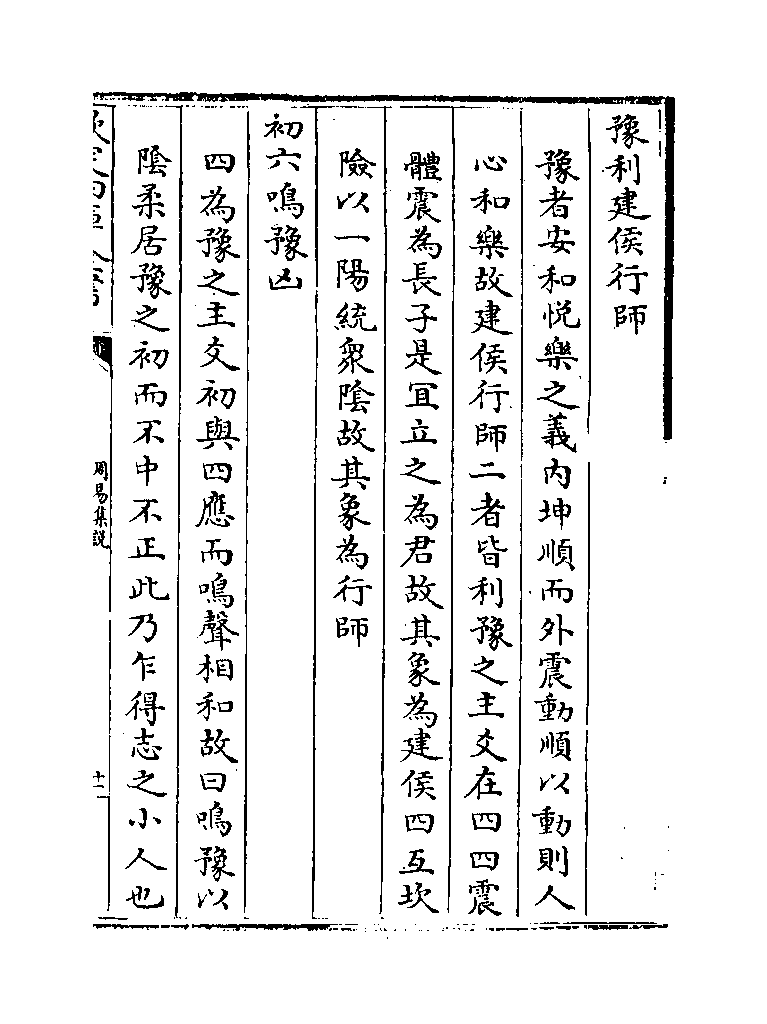 豫利建侯行師
豫者安和悦樂之義内坤順而外震動順以動則人
心和樂故建侯行師二者皆利豫之主爻在四四震
體震為長子是冝立之為君故其象為建侯四互坎
險以一陽統衆陰故其象為行師
初六鳴豫凶
四為豫之主爻初與四應而鳴聲相和故曰鳴豫以
陰柔居豫之初而不中不正此乃乍得志之小人也
周易集説
十一